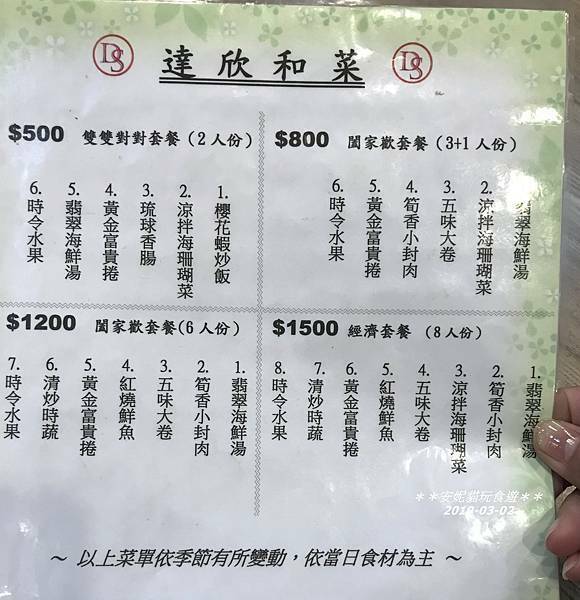 DS 達欣和菜 DS
$500 雙雙對對套餐（2人份）
1. 櫻花蝦炒飯
2. 涼拌海珊瑚菜
3. 琉球香腸
4. 黃金富貴捲
5. 翡翠海鮮湯
6. 時令水果
$800 闔家歡套餐（3+1人份）
翡翠海鮮湯
2. 涼拌海珊瑚菜
3. 五味大卷
4. 筍香小封肉
5. 黃金富貴捲
6. 時令水果
$1200 闔家歡套餐(6人份）
1. 翡翠海鮮湯
2. 筍香小封肉
3. 五味大卷
4. 紅燒鮮魚
5. 黃金富貴捲
6. 清炒時蔬
7. 時令水果
$1500 經濟套餐 （8人份）
1. 翡翠海鮮湯
2. 筍香小封肉
3. 涼拌海珊瑚菜
4. 五味大卷
5. 紅燒鮮魚
6. 黃金富貴捲
7. 清炒時蔬
8. 時令水果
＊＊安妮貓玩食遊＊＊
2019-03-02
～ 以上菜單依季節有所變動，依當日食材為主 ～